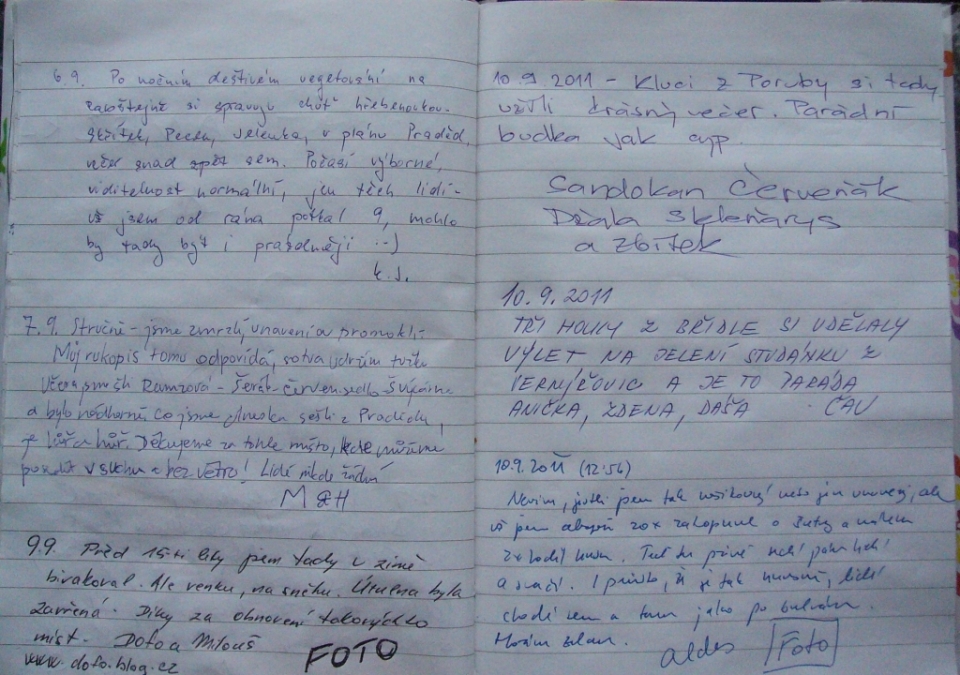 6.9. Po nočním deštivém vegetování na
si spravuju chuť hřebenovkou.
Pecny, Jelenka, v plánu Praděd,
snad zpět sem. Počasí výborné,
viditelnost normální, jen těch lidí -
už jsem od rána potkal 9, mohlo
by tady být i prázdněji :-)
k.j.
7.9. Stručně - jsme zmrzlí, unavení a promoklí.
Můj rukopis tomu odpovídá, sotva udržím tužku
Včera jsme šli Ramzová - Šerák - Červen.sedlo - Švýcárna
a bylo nádherně. Co jsme dneska sešli z Pradědu,
je hůř a hůř. Děkujeme za tohle místo, kde můžeme
posedět v suchu a bez větru! Lidi nikde žádní
M & H
9.9. Před 15-ti lety jsem tady v zimě
bivakoval. Ale venku, na sněhu. Útulna byla
zavřená. Díky za obnovení takovýchto
míst. Dofo a Milouš
www.dofo.blog.cz
FOTO
10.9.2011 - Kluci z Poruby si tady
užili krásný večer. Parádní
budka jak
Sandokan Červeňák
Džala Skleňarys
a Zbítek
10.9.2011
TŘI HOLKY Z BŘIDLE SI UDĚLALY
VÝLET NA JELENÍ STUDÁNKU Z
VERMÍŘOVIC A JE TO PARÁDA
ANIČKA, ZDENA, DAŠA ČAU
10.9.2011 (12:56)
Nevím, jestli jsem tak nebo jen unavený, ale
už jsem alespoň 20x zakopnul o šutry a málem
2x hodil hubu. Teď tu právě sedí
a svačí. I přesto, že je tak lidi
chodí sem a tam jako po bulváru.
Horám zdar.
aldes Foto